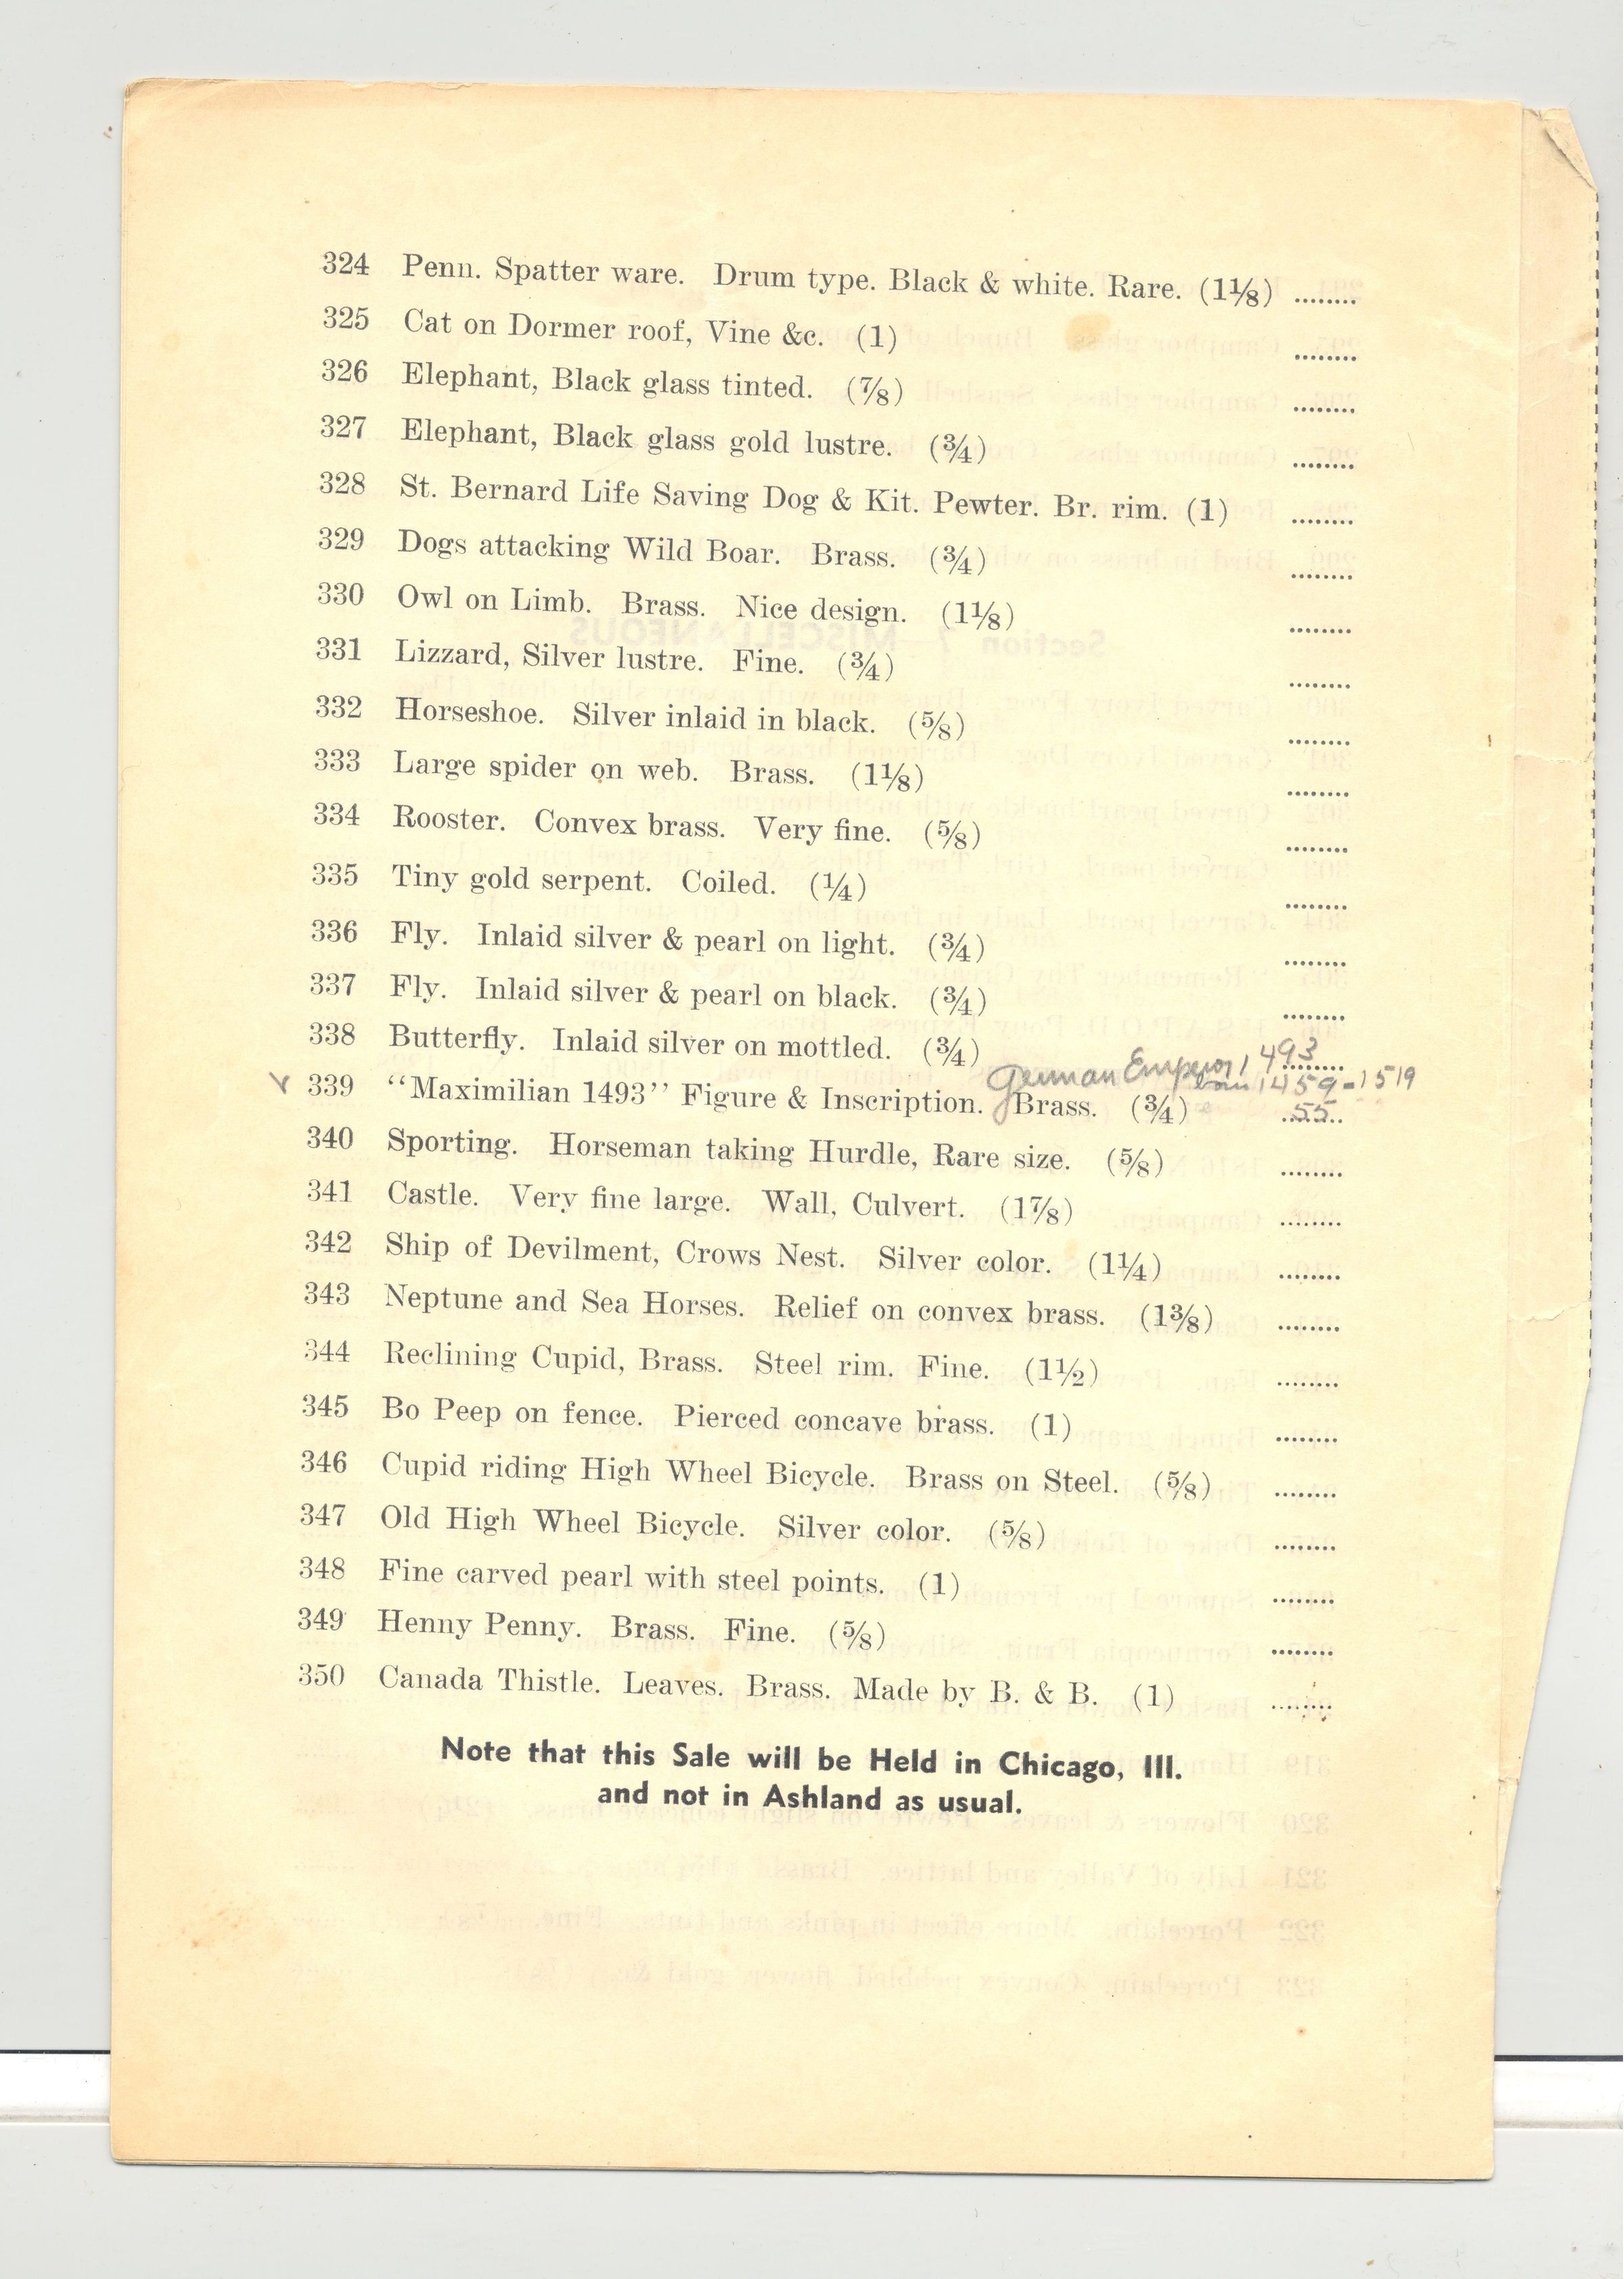 324 Penn. Spatter ware. Drum type. Black & white. Rare. (1⅛) ........
325 Cat on Dormer roof, Vine &c. (1) ........
326 Elephant, Black glass tinted. (⅞) ........
327 Elephant, Black glass gold lustre. (¾) ........
328 St. Bernard Life Saving Dog & Kit. Pewter. Br. rim. (1) ........
329 Dogs attacking Wild Boar. Brass. (¾) ........
330 Owl on Limb. Brass. Nice design. (1⅛) ........
331 Lizzard, Silver lustre. Fine. (¾) ........
332 Horseshoe. Silver inlaid in black. (⅝) ........
333 Large spider on web. Brass. (1⅛) ........
334 Rooster. Convex brass. Very fine. (⅝) ........
335 Tiny gold serpent. Coiled. (¼) ........
336 Fly. Inlaid silver & pearl on light. (¾) ........
337 Fly. Inlaid silver & pearl on black. (¾) ........
338 Butterfly. Inlaid silver on mottled. (¾) ........
German Emperor 1493
born 1459-1519
339 "Maximilian 1493" Figure & Inscription. Brass. (¾) .55
340 Sporting. Horseman taking Hurdle, Rare size. (⅝) ........
341 Castle. Very fine large. Wall, Culvert. (1⅞) ........
342 Ship of Devilment, Crows Nest. Silver color. (1¼) ........
343 Neptune and Sea Horses. Relief on convex brass. (1⅜) ........
344 Reclining Cupid, Brass. Steel rim. Fine. (1½) ........
345 Bo Peep on fence. Pierced concave brass. (1) ........
346 Cupid riding High Wheel Bicycle. Brass on Steel. (⅝) ........
347 Old High Wheel Bicycle. Silver color. (⅝) ........
348 Fine carved pearl with steel points. (1) ........
349 Henny Penny. Brass. Fine. (⅝) ........
350 Canada Thistle. Leaves. Brass. Made by B. & B. (1) ........
Note that this Sale will be Held in Chicago, Ill.
and not in Ashland as usual.